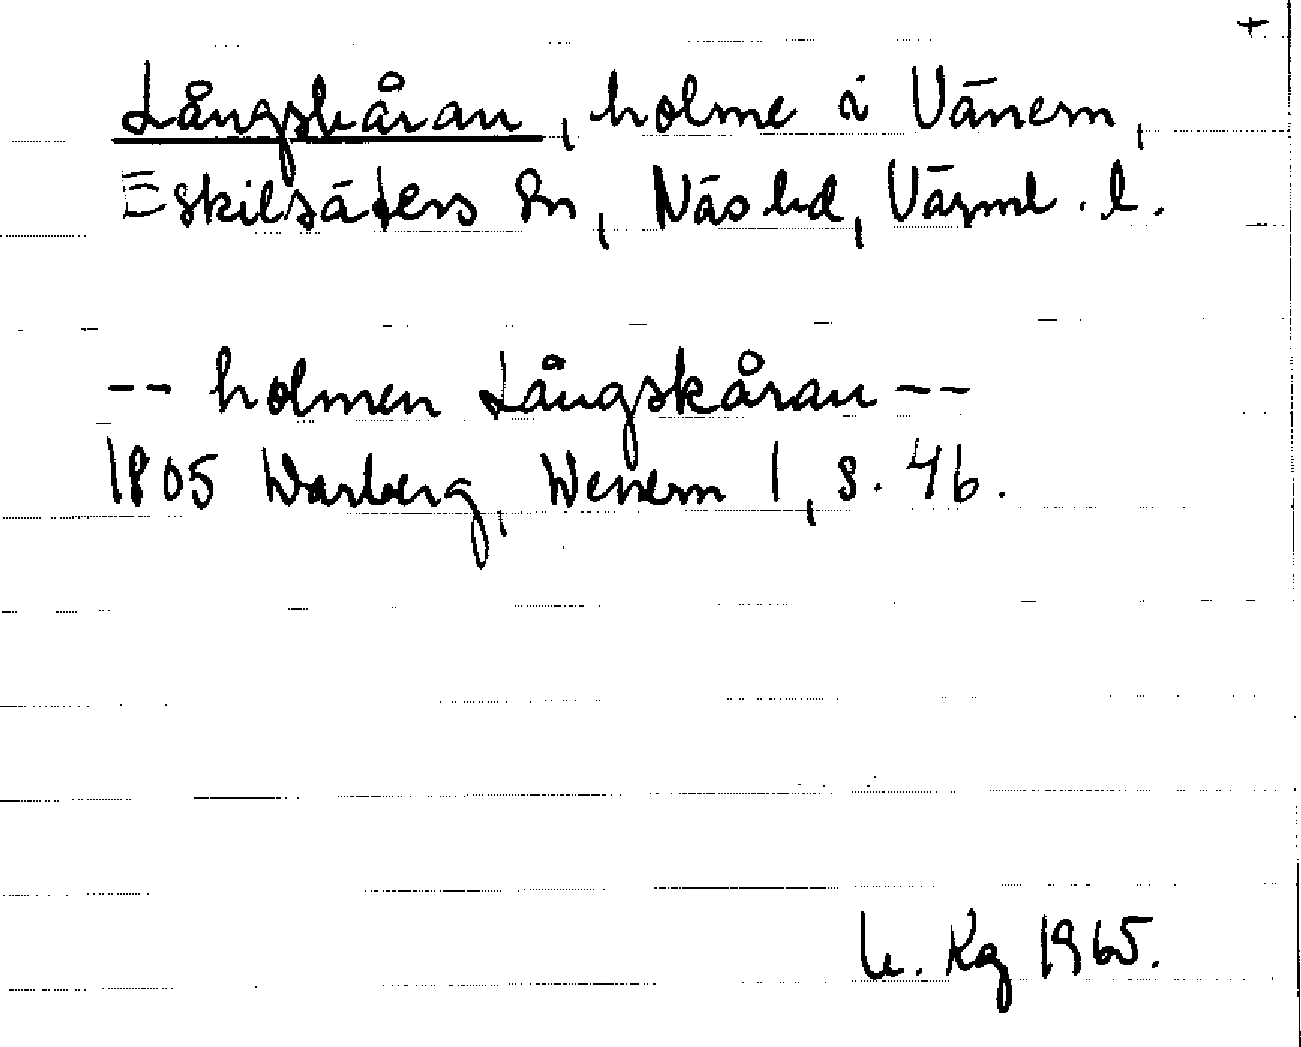 +
Långskåran, holme i Vänern,
Eskilsäters sn, Näs hd, Värml. l.
-- holmen Långskåran --
1805 Warberg, Wenern 1, s. 46.
U. Kg 1965.